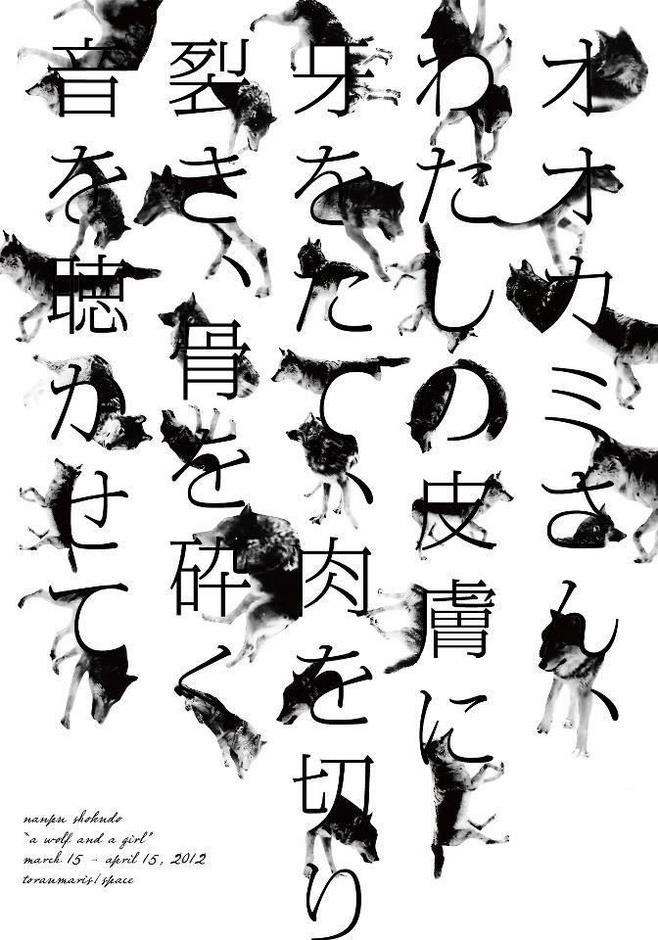 オオカミさん、
わたしの皮膚に
牙をたて、肉を切り
裂き、骨を砕く
音を聴かせて
nanpu shokudo
"a wolf and a girl"
march 15 - april 15, 2012
toraumaris/space